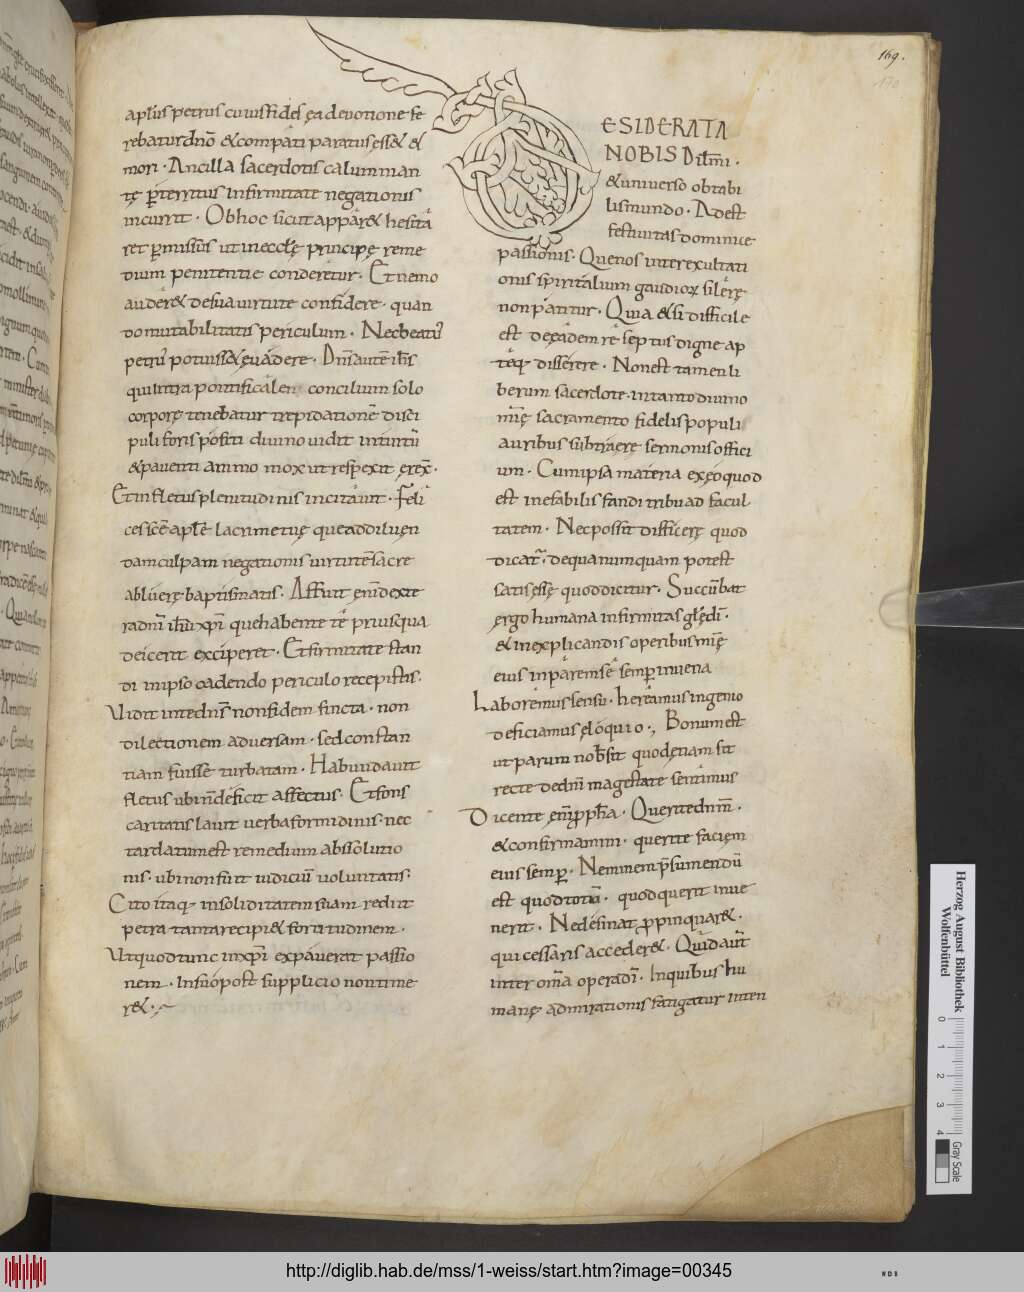 169.
170
apl̄us petrus cuius fides ea devotione fe
rebatur dn̄o & compati paratus ess& &
mori · Ancilla sacerdotis calumnian
tę p̄territus infirmitate negationis
incurrit · Ob hoc sicut appar& hesita
ret permissus ut in ecclę principę reme
dium penitentie conderetur · Et nemo
auder& de sua virtute confidere · quan
do mutabilitatis periculum · Nec beatus
petrus potuiss& evadere · Dn̄s autē ih̄s
qui intra pontificalem concilium solo
corporę tenebatur trepidationē disci
puli foris positi divino vidit intuitū
& paventi animo mox ut respexit erex̄ ·
Et in fletus plenitudinis incitavit · Feli
ces s̄cē apl̄e lacrimę tuę que ad diluen
dam culpam negationis virtutē sacre
abluerę baptismatis · Affuit enim dexte
ra dn̄i ih̄u xp̄i que habente te priusqua
deicerit exciperet · Et firmitate stan
di in ipso cadendo periculo recepistis ·
Vidit in te dn̄s non fidem ficta · non
dilectionem adversam · sed constan
tiam fuisse turbatam · Habundavit
fletus ubi n̄ deficit affectus · Et fons
caritatis lavit verba formidinis · nec
tardatum est remedium absolutio
nis · ubi non fuit iudiciū voluntatis ·
Cito itaq· in soliditatem suam rediit
petra tanta recipi& fortitudinem ·
Ut quod tunc in xp̄i expaverat passio
nem · In suo post supplicio non time
r& ·
DESIDERATA
NOBIS Dil̄mi ·
& universo obtabi
lis mundo · Adest
festivitas dominice
passionis · Que nos inter exultati
onis spiritalium gaudiorum silerę
non patitur · Quia & si difficile
est de eadem re septus digne ap
teq· disserere · Non est tamen li
berum sacerdote · in tanto divino
mīę sacramento fidelis populi
auribus subtraere sermonis offici
um · Cum ipsa materia ex eo quod
est inefabilis fandi tribuad facul
tatem · Nec possit difficerę quod
dicatur · de qua nunquam potest
satis esse quod dicitur · Succūbat
ergo humana infirmitas gl̄ę dī ·
& in explicandis operibus mīę
eius inparem se semper invenia
Laboremus sensu · hereamus ingenio
deficiamus eloquio · Bonum est
ut parum nob̄ sit quod etiam sit
recte de dn̄i magestate sentimus
Dicente enim pph̄a · Querite dn̄m ·
& confirmamini · querite faciem
eius semper · Nemini p̄sumendū
est quod totū · quod querit inve
nerit · Ne desinat propinquar& ·
qui cessaris acceder& · Quid aūt
inter om̄a opera dī · In quibus hu
manę admirationis fatigatur inten
Herzog August Bibliothek
Wolfenbüttel
0 1 2 3 4
Gray Scale
http://diglib.hab.de/mss/1-weiss/start.htm?image=00345